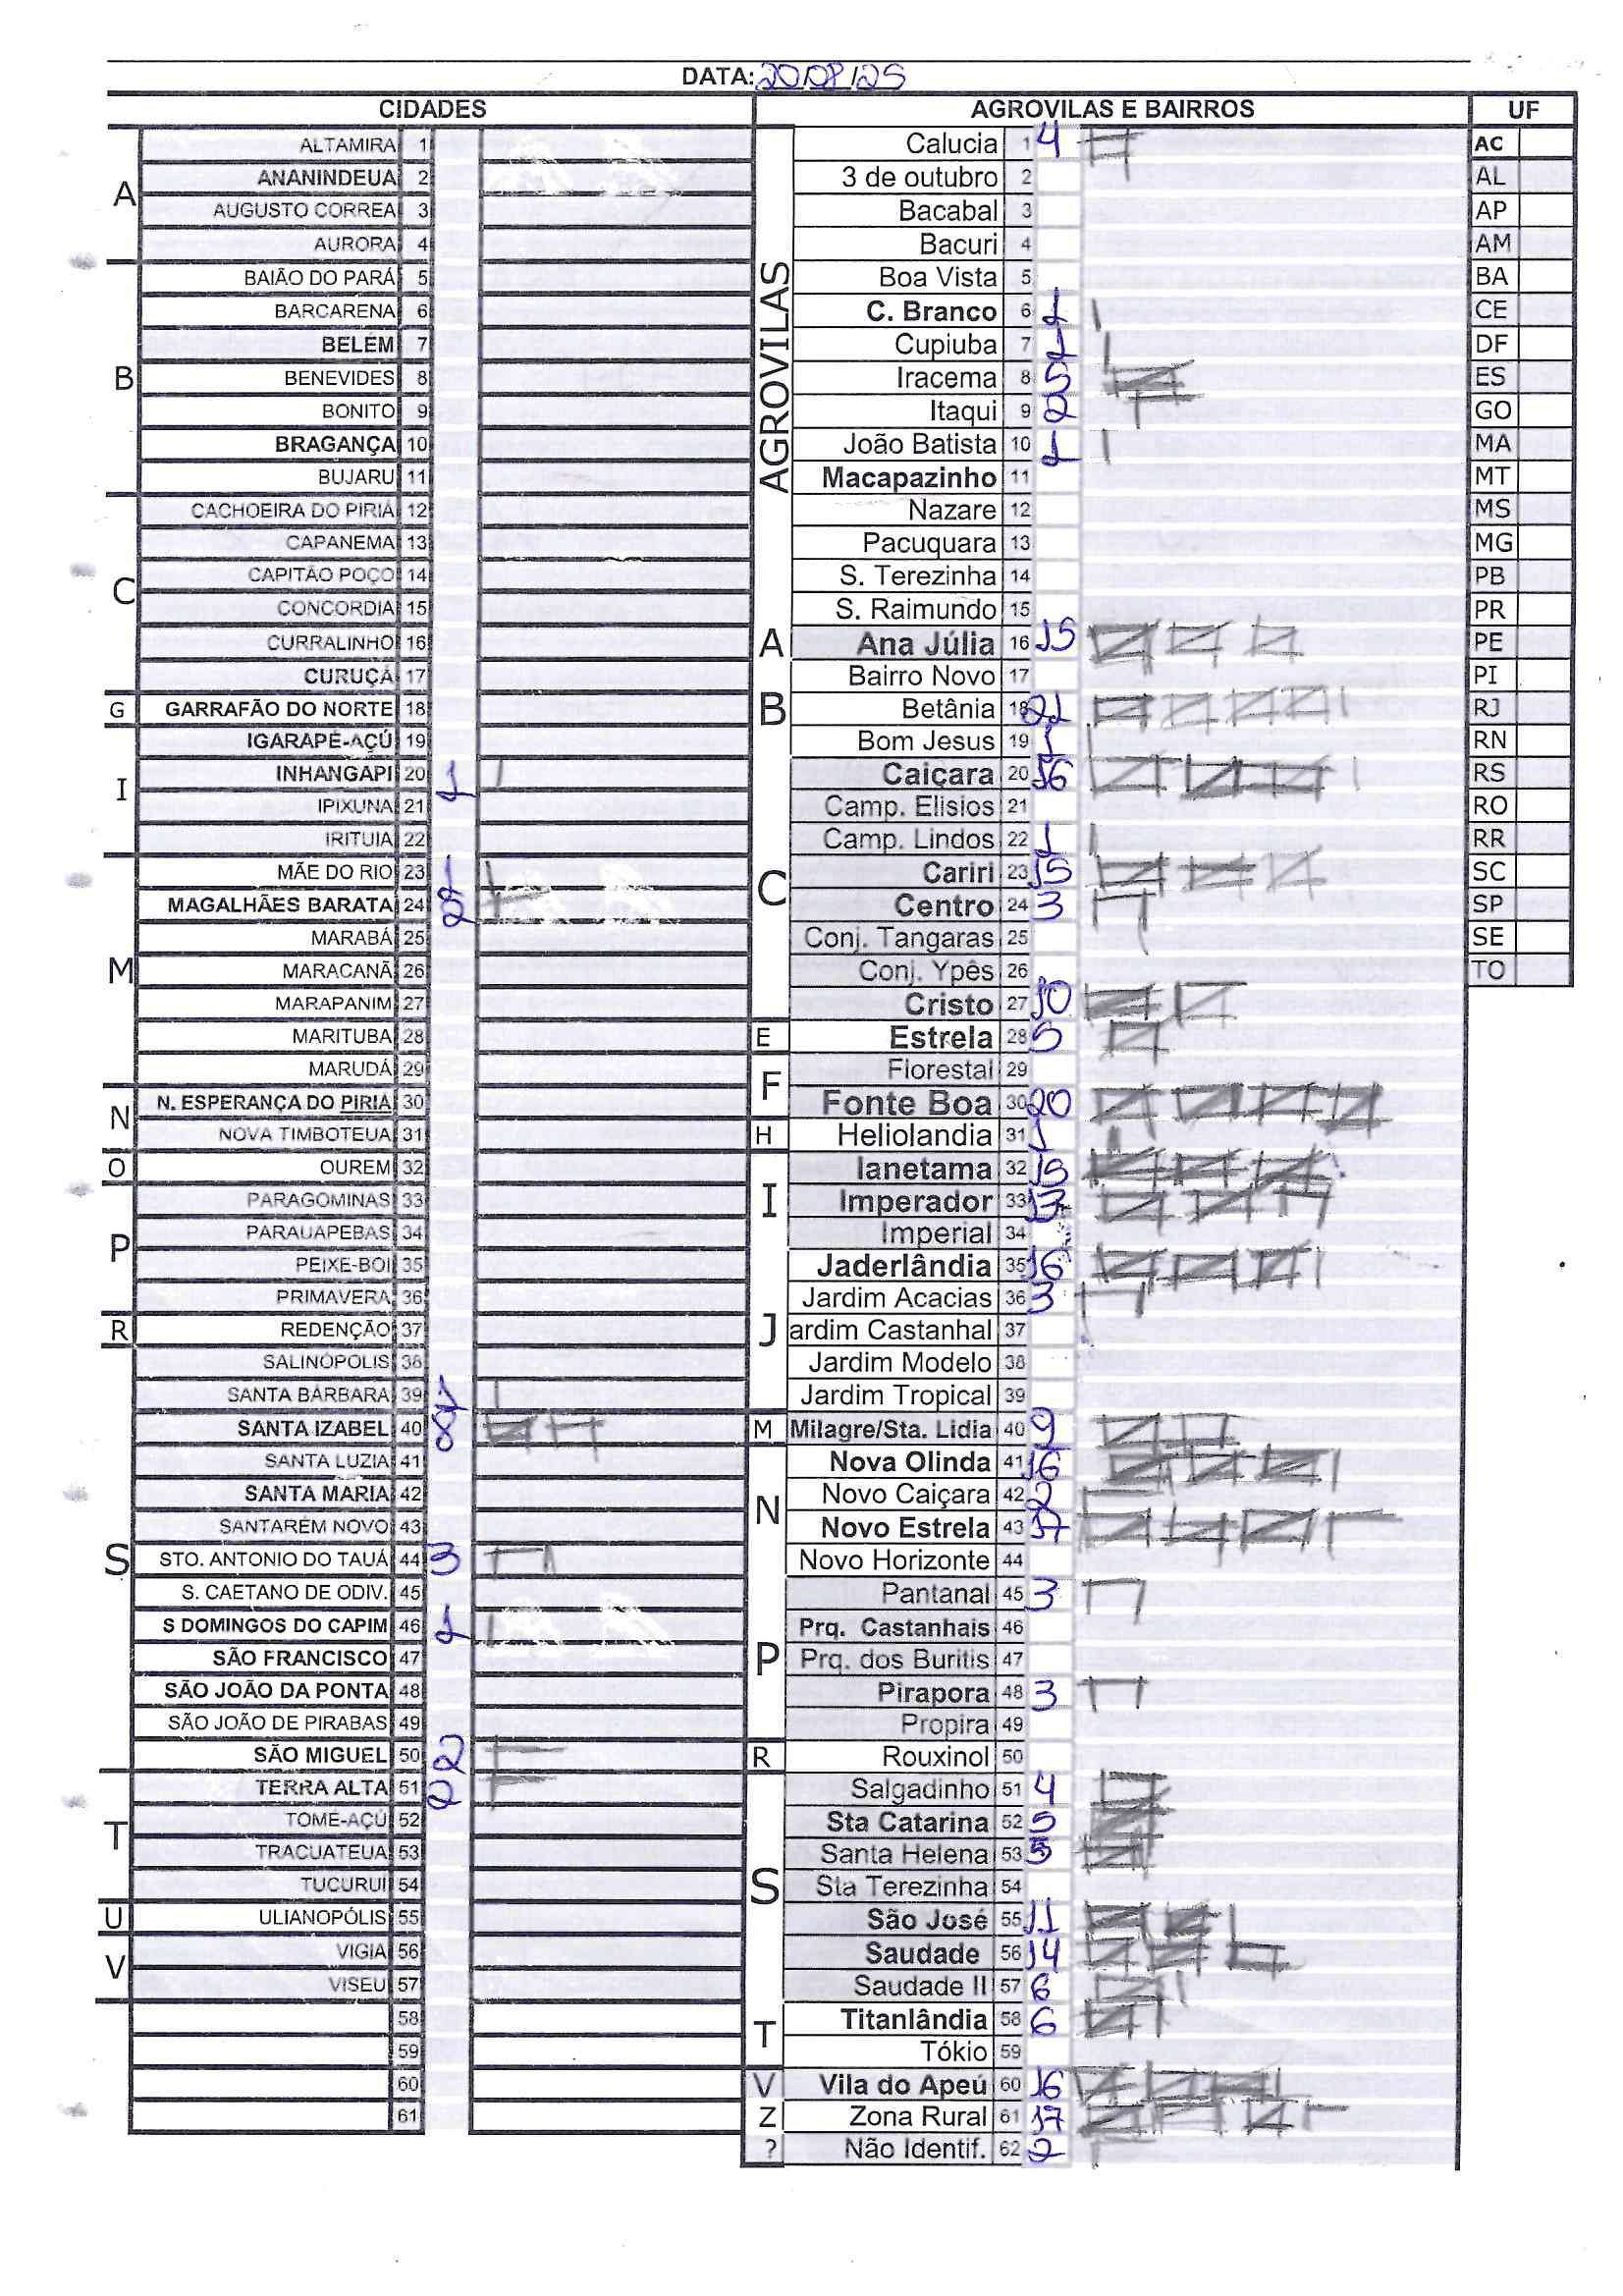 DATA: 20/08/25
CIDADES
A
ALTAMIRA 1
ANANINDEUA 2
AUGUSTO CORREA 3
AURORA 4
B
BAIÃO DO PARÁ 5
BARCARENA 6
BELÉM 7
BENEVIDES 8
BONITO 9
BRAGANÇA 10
BUJARU 11
C
CACHOEIRA DO PIRIÁ 12
CAPANEMA 13
CAPITÃO POÇO 14
CONCORDIA 15
CURRALINHO 16
CURUÇÁ 17
G
GARRAFÃO DO NORTE 18
I
IGARAPÉ-AÇÚ 19
INHANGAPI 20 1
IPIXUNA 21
IRITUIA 22
M
MÃE DO RIO 23 1
MAGALHÃES BARATA 24 2
MARABÁ 25
MARACANÃ 26
MARAPANIM 27
MARITUBA 28
MARUDÁ 29
N
N. ESPERANÇA DO PIRIÁ 30
NOVA TIMBOTEUA 31
O
OUREM 32
P
PARAGOMINAS 33
PARAUAPEBAS 34
PEIXE-BOI 35
PRIMAVERA 36
R
REDENÇÃO 37
S
SALINÓPOLIS 38
SANTA BÁRBARA 39 1
SANTA IZABEL 40 8
SANTA LUZIA 41
SANTA MARIA 42
SANTARÉM NOVO 43
STO. ANTONIO DO TAUÁ 44 3
S. CAETANO DE ODIV. 45
S DOMINGOS DO CAPIM 46 1
SÃO FRANCISCO 47
SÃO JOÃO DA PONTA 48
SÃO JOÃO DE PIRABAS 49
SÃO MIGUEL 50 2
T
TERRA ALTA 51 2
TOMÉ-AÇÚ 52
TRACUATEUA 53
TUCURUI 54
U
ULIANOPÓLIS 55
V
VIGIA 56
VISEU 57
58
59
60
61
AGROVILAS E BAIRROS
AGROVILAS
Calucia 1 4
3 de outubro 2
Bacabal 3
Bacuri 4
Boa Vista 5
C. Branco 6 1
Cupiuba 7 1
Iracema 8 5
Itaqui 9 2
João Batista 10 1
Macapazinho 11
Nazare 12
Pacuquara 13
S. Terezinha 14
S. Raimundo 15
A
Ana Júlia 16 15
B
Bairro Novo 17
Betânia 18 21
Bom Jesus 19 1
C
Caiçara 20 16
Camp. Elisios 21
Camp. Lindos 22 1
Cariri 23 15
Centro 24 3
Conj. Tangaras 25
Conj. Ypês 26
Cristo 27 10
E
Estrela 28 5
F
Florestal 29
Fonte Boa 30 20
H
Heliolandia 31 1
I
Ianetama 32 15
Imperador 33 13
Imperial 34
J
Jaderlândia 35 16
Jardim Acacias 36 3
ardim Castanhal 37
Jardim Modelo 38
Jardim Tropical 39
M
Milagre/Sta. Lidia 40 9
N
Nova Olinda 41 16
Novo Caiçara 42 2
Novo Estrela 43 17
Novo Horizonte 44
P
Pantanal 45 3
Prq. Castanhais 46
Prq. dos Buritis 47
Pirapora 48 3
Propira 49
R
Rouxinol 50
S
Salgadinho 51 4
Sta Catarina 52 5
Santa Helena 53 5
Sta Terezinha 54
São José 55 11
Saudade 56 14
Saudade II 57 6
T
Titanlândia 58 6
Tókio 59
V
Vila do Apeú 60 16
Z
Zona Rural 61 17
?
Não Identif. 62 2
UF
AC
AL
AP
AM
BA
CE
DF
ES
GO
MA
MT
MS
MG
PB
PR
PE
PI
RJ
RN
RS
RO
RR
SC
SP
SE
TO